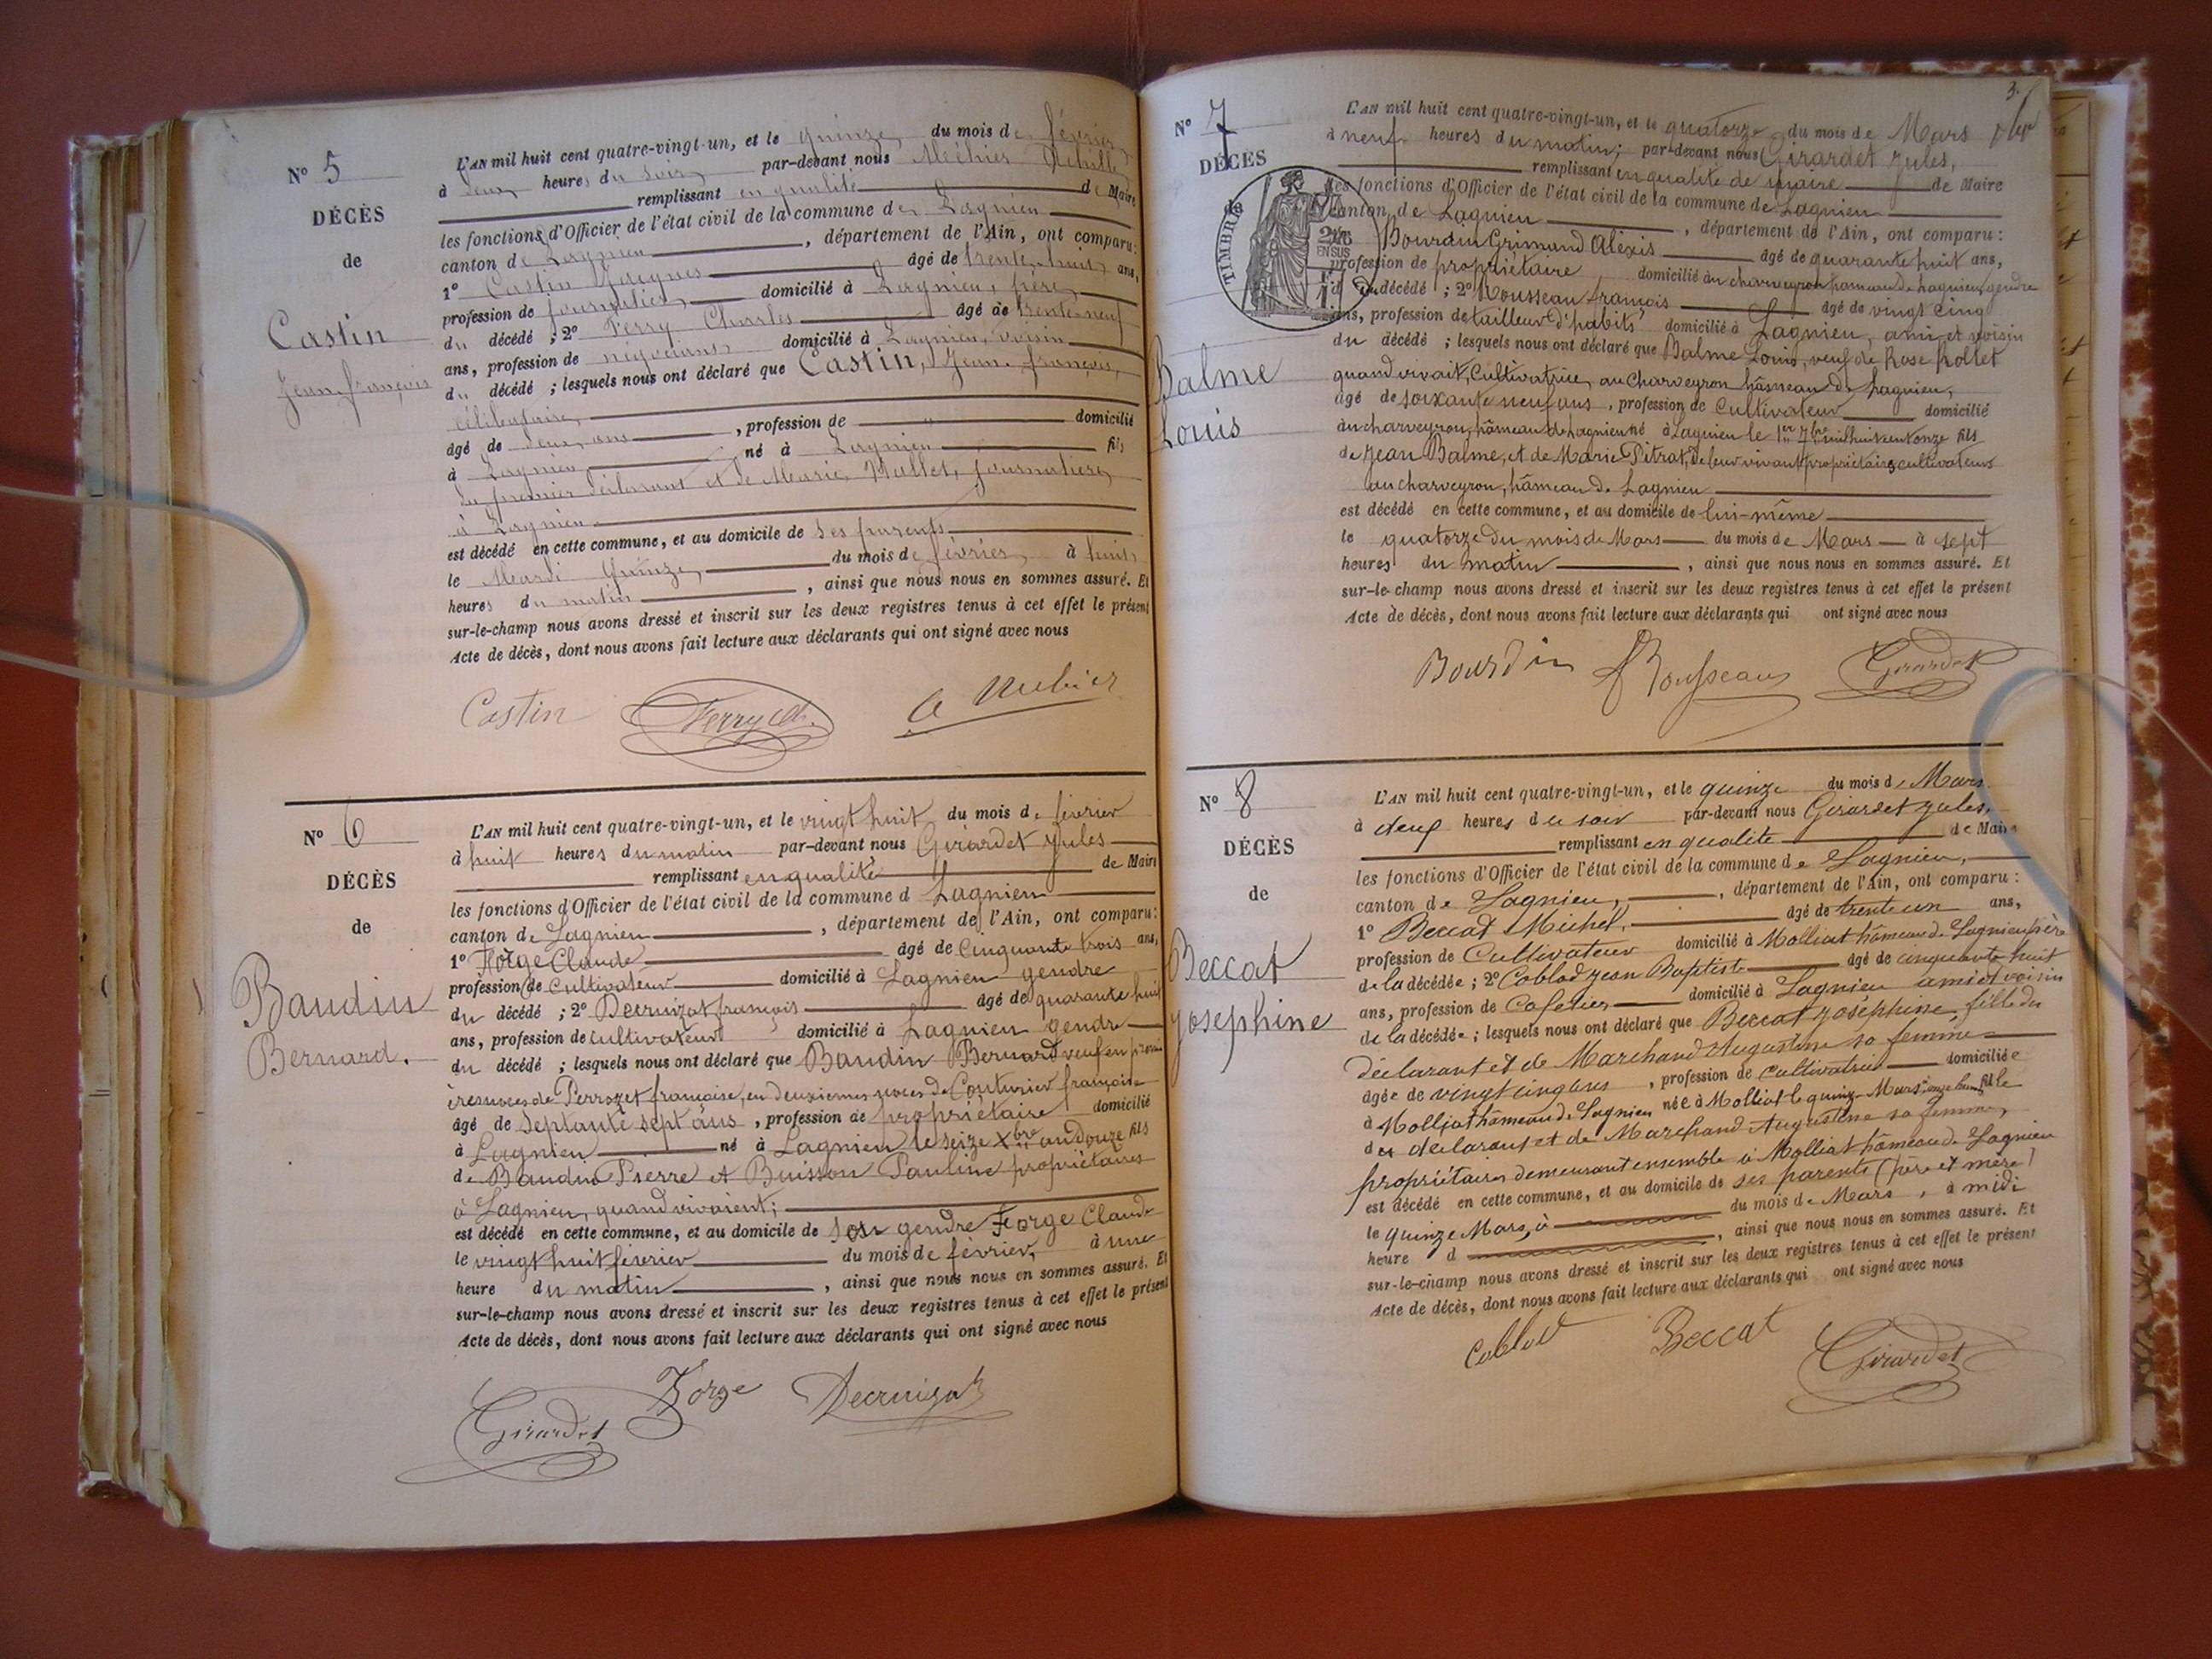 N° 5
DÉCÈS
de
Castin
Jean François
L'AN mil huit cent quatre-vingt-un, et le quinze du mois de février
à deux heures du soir par-devant nous Méhier Achille
remplissant en qualité de Maire
les fonctions d'Officier de l'état civil de la commune de Lagnieu
canton de Lagnieu, département de l'Ain, ont comparu:
1° Castin Jacques âgé de trente-huit ans,
profession de journalier domicilié à Lagnieu, père
du décédé ; 2° Ferry Charles âgé de trente-neuf
ans, profession de négociant domicilié à Lagnieu, voisin
du décédé ; lesquels nous ont déclaré que Castin, Jean-françois,
célibataire,
âgé de deux ans, profession de " domicilié
à Lagnieu né à Lagnieu fils
du premier déclarant et de Marie Ballet, journalière
à Lagnieu
est décédé en cette commune, et au domicile de ses parents
le Mardi quinze du mois de février à huit
heures du matin, ainsi que nous nous en sommes assuré. Et
sur-le-champ nous avons dressé et inscrit sur les deux registres tenus à cet effet le présent
Acte de décès, dont nous avons fait lecture aux déclarants qui ont signé avec nous
Castin Ferry Ch. A Mehier
N° 6
DÉCÈS
de
Baudin
Bernard.
L'AN mil huit cent quatre-vingt-un, et le vingt huit du mois de février
à huit heures du matin par-devant nous Girardet Jules
remplissant en qualité de Maire
les fonctions d'Officier de l'état civil de la commune d Lagnieu
canton de Lagnieu, département de l'Ain, ont comparu:
1° Forge Claude âgé de Cinquante trois ans,
profession de Cultivateur domicilié à Lagnieu gendre
du décédé ; 2° Decruizat françois âgé de quarante huit
ans, profession de cultivateur domicilié à Lagnieu gendre
du décédé ; lesquels nous ont déclaré que Baudin Bernard veuf en prem
ières noces de Perrozet françoise, en deuxièmes noces de Couturier françoise
âgé de Septante sept ans, profession de propriétaire domicilié
à Lagnieu né à Lagnieu le seize Xbre an douze fils
de Baudin Pierre et Buisson Pauline propriétaires
à Lagnieu, quand vivaient;
est décédé en cette commune, et au domicile de son gendre Forge Claude
le vingt huit février du mois de février, à une
heure du matin, ainsi que nous nous en sommes assuré. Et
sur-le-champ nous avons dressé et inscrit sur les deux registres tenus à cet effet le présent
Acte de décès, dont nous avons fait lecture aux déclarants qui ont signé avec nous
Girardet Forge Decruizat
3.
N° 7
DÉCÈS
de
TIMBRE
2/10
EN SUS
Balme
Louis
L'AN mil huit cent quatre-vingt-un, et le quatorze du mois de Mars
à neuf heures du matin; par-devant nous Girardet Jules,
remplissant en qualité de maire de Maire
les fonctions d'Officier de l'état civil de la commune de Lagnieu
canton de Lagnieu, département de l'Ain, ont comparu:
Bourdin Grimand Alexis âgé de quarante huit ans,
profession de propriétaire domicilié au charveyron hâmeau de Lagnieu gendre
du décédé ; 2° Rousseau françois âgé de vingt cinq
ans, profession de tailleur d'habits domicilié à Lagnieu, ami et voisin
du décédé ; lesquels nous ont déclaré que Balme Louis, veuf de Rose Rollet
quand vivait, Cultivatrice, au Charveyron hâmeau de Lagnieu,
âgé de soixante neuf ans, profession de Cultivateur domicilié
au charveyron, hâmeau de Lagnieu né à Lagnieu le 1er 7bre mil huit cent onze fils
de Jean Balme, et de Marie Pitrat, de leur vivant propriétaires cultivateurs
au charveyron, hâmeau de Lagnieu
est décédé en cette commune, et au domicile de lui-même
le quatorze du mois de Mars du mois de Mars à sept
heures du matin, ainsi que nous nous en sommes assuré. Et
sur-le-champ nous avons dressé et inscrit sur les deux registres tenus à cet effet le présent
Acte de décès, dont nous avons fait lecture aux déclarants qui ont signé avec nous
Bourdin f Rousseau Girardet
N° 8
DÉCÈS
de
Beccat
Josephine
L'AN mil huit cent quatre-vingt-un, et le quinze du mois de Mars
à deux heures du soir par-devant nous Girardet Jules,
remplissant en qualité de Maire
les fonctions d'Officier de l'état civil de la commune de Lagnieu,
canton de Lagnieu, département de l'Ain, ont comparu:
1° Beccat Michel, âgé de trente un ans,
profession de Cultivateur domicilié à Molliat hâmeau de Lagnieu père
de la décédée ; 2° Coblod Jean Baptiste âgé de cinquante huit
ans, profession de Cafetier domicilié à Lagnieu ami et voisin
de la décédée ; lesquels nous ont déclaré que Beccat Joséphine, fille du
déclarant et de Marchand Augustine sa femme
âgée de vingt cinq , profession de cultivatrice domiciliée
à Molliat hâmeau de Lagnieu née à Molliat le quinze Mars fille
des déclarant et de Marchand Augustine sa femme,
propriétaires demeurant ensemble à Molliat hâmeau de Lagnieu
est décédé en cette commune, et au domicile de ses parents (père et mère)
le quinze Mars, à du mois de Mars, à midi
heure d , ainsi que nous nous en sommes assuré. Et
sur-le-champ nous avons dressé et inscrit sur les deux registres tenus à cet effet le présent
Acte de décès, dont nous avons fait lecture aux déclarants qui ont signé avec nous
Coblod Beccat Girardet